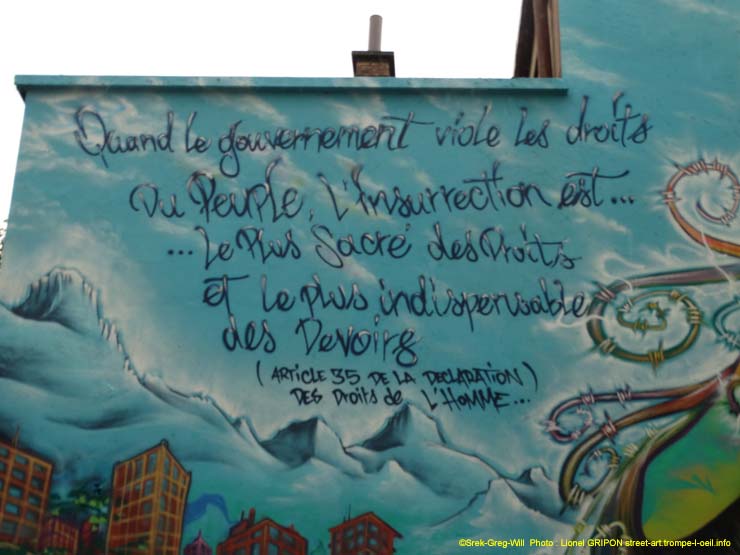 Quand le gouvernement viole les droits
Du Peuple, L'Insurrection est...
...Le Plus Sacré des Droits
et le plus indispensable
des Devoirs
(ARTICLE 35 DE LA DECLARATION)
DES Droits de L'HOMME...
©Srek-Greg-Will Photo : Lionel GRIPON street-art.trompe-l-oeil.info